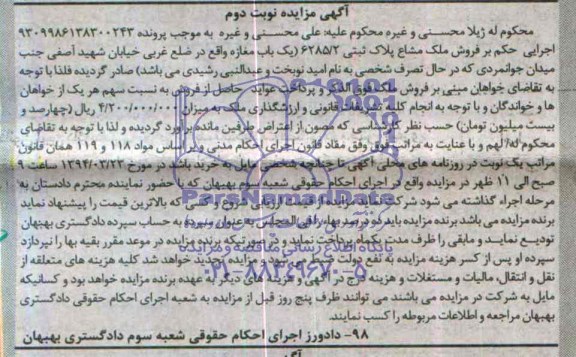 آگهی مزایده نوبت دوم
محکوم له ژیلا محسنی و غیره محکوم علیه: علی محسنی و غیره به موجب پرونده ۹۳۰۹۹۸۶۱۳۸۳۰۰۲۴۳
اجرایی حکم بر فروش ملک مشاع پلاک ثبتی ۶۲۸۵/۲ (یک باب مغازه واقع در ضلع غربی خیابان شهید آصفی جنب
میدان جوانمردی که در حال تصرف شخصی به نام امید نوبخت و عبدالنبی رشیدی می باشد) صادر گردیده فلذا با توجه
به تقاضای خواهان مبنی بر فروش ملک فوق الذکر و پرداخت عواید حاصل از فروش به نسبت سهم هر یک از خواهان
ها و خواندگان و با توجه به انجام کلیه تشریفات قانونی و ارزشگذاری ملک به میزان ۴/۲۰۰/۰۰۰/۰۰۰ ریال (چهارصد و
بیست میلیون تومان) حسب نظر کارشناسی که مصون از اعتراض طرفین مانده برآورد گردیده و لذا با توجه به تقاضای
محکوم له/لهم و با عنایت به مراتب فوق وفق مفاد قانون اجرای احکام مدنی و بر اساس مواد ۱۱۸ و ۱۱۹ همان قانون
مراتب یک نوبت در روزنامه های محلی آگهی تا چنانچه شخصی مایل به خرید باشد در مورخ ۱۳۹۴/۰۳/۲۳ ساعت ۹
صبح الی ۱۱ ظهر در مزایده واقع در اجرای احکام حقوقی شعبه سوم بهبهان که با حضور نماینده محترم دادستان به
مرحله اجراء گذاشته می شود شرکت نماید. مزایده از قیمت ارزیابی شروع و کسی که بالاترین قیمت را پیشنهاد نماید
برنده مزایده می باشد برنده مزایده باید ده درصد بهاء را فی المجلس به عنوان سپرده به حساب سپرده دادگستری بهبهان
تودیع نمایند و مابقی را ظرف مدت یکماه پرداخت نماید و در صورتیکه برنده مزایده در موعد مقرر بقیه بها را نپردازد
سپرده او پس از کسر هزینه مزایده به نفع دولت ضبط می شود و مزایده تجدید خواهد شد کلیه هزینه های متعلقه از
نقل و انتقال، مالیات و مستغلات و هزینه درج در آگهی و هزینه های دیگر به عهده برنده مزایده خواهد بود و کسانیکه
مایل به شرکت در مزایده می باشند می توانند ظرف پنج روز قبل از مزایده به شعبه اجرای احکام حقوقی دادگستری
بهبهان مراجعه و اطلاعات مربوطه را کسب نمایند.
۹۸- دادورز اجرای احکام حقوقی شعبه سوم دادگستری بهبهان
۰۲۱-۸۸۳۴۹۶۷۰-۵